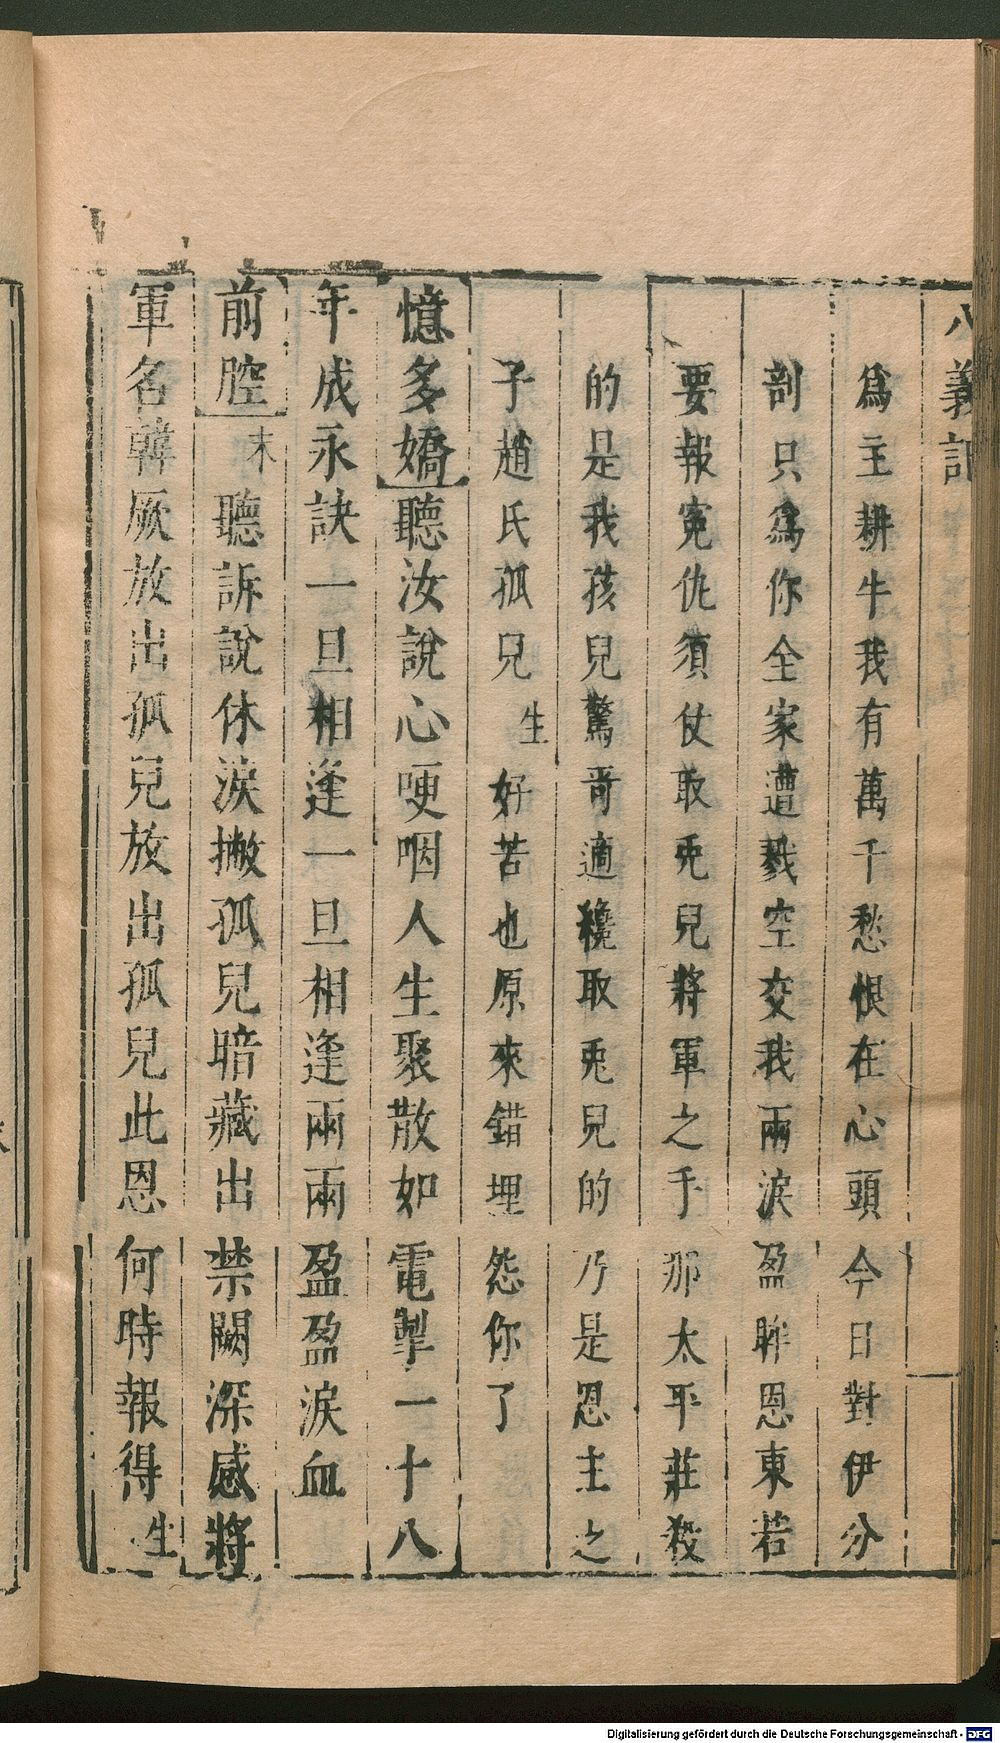 八義記
爲主耕牛我有萬千愁恨在心頭今日對伊分
剖只爲你全家遭戮空交我兩淚盈眸恩東若
要報寃仇須仗取兎兒將軍之手那太平莊殺
的是我孩兒驚哥適纔取兎兒的乃是恩主之
子趙氏孤兒生好苦也原來錯埋怨你了
憶多嬌聽汝說心哽咽人生聚散如電掣一十八
年成永訣一旦相逢一旦相逢兩兩盈盈淚血
前腔末聽訴說休淚撇孤兒暗藏出禁闕深感將
軍名韓厥放出孤兒放出孤兒此恩何時報得生
Digitalisierung gefördert durch die Deutsche Forschungsgemeinschaft - DFG